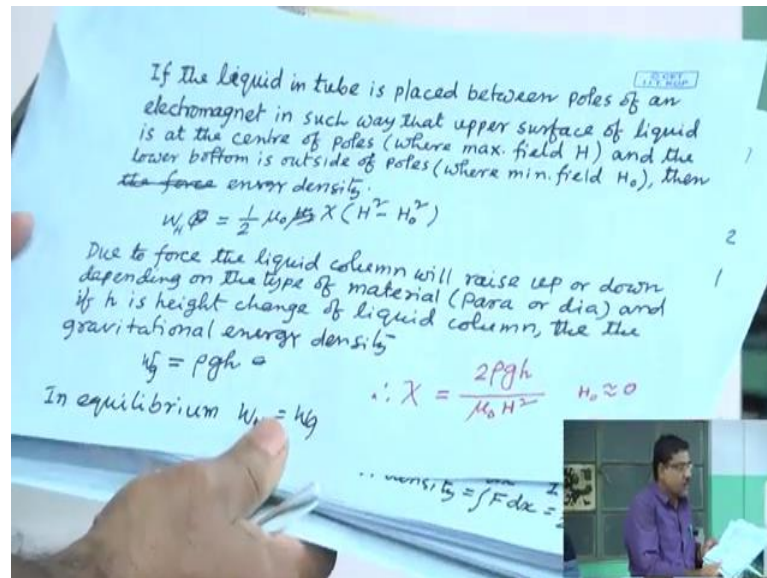 © CET
I.I.T. KGP
If the liquid in tube is placed between poles of an
electromagnet in such way that upper surface of liquid
is at the centre of poles (where max. field H) and the
lower bottom is outside of poles (where min. field H₀), then
the force energy density.
W_H = 1/2 μ₀ χ (H² - H₀²)
Due to force the liquid column will raise up or down
depending on the type of material (para or dia) and
if h is height change of liquid column, the the
gravitational energy density
W_g = ρgh
∴ χ = 2ρgh / μ₀ H² H₀ ≈ 0
In equilibrium W = W_g
density = ∫F dx =
2
1